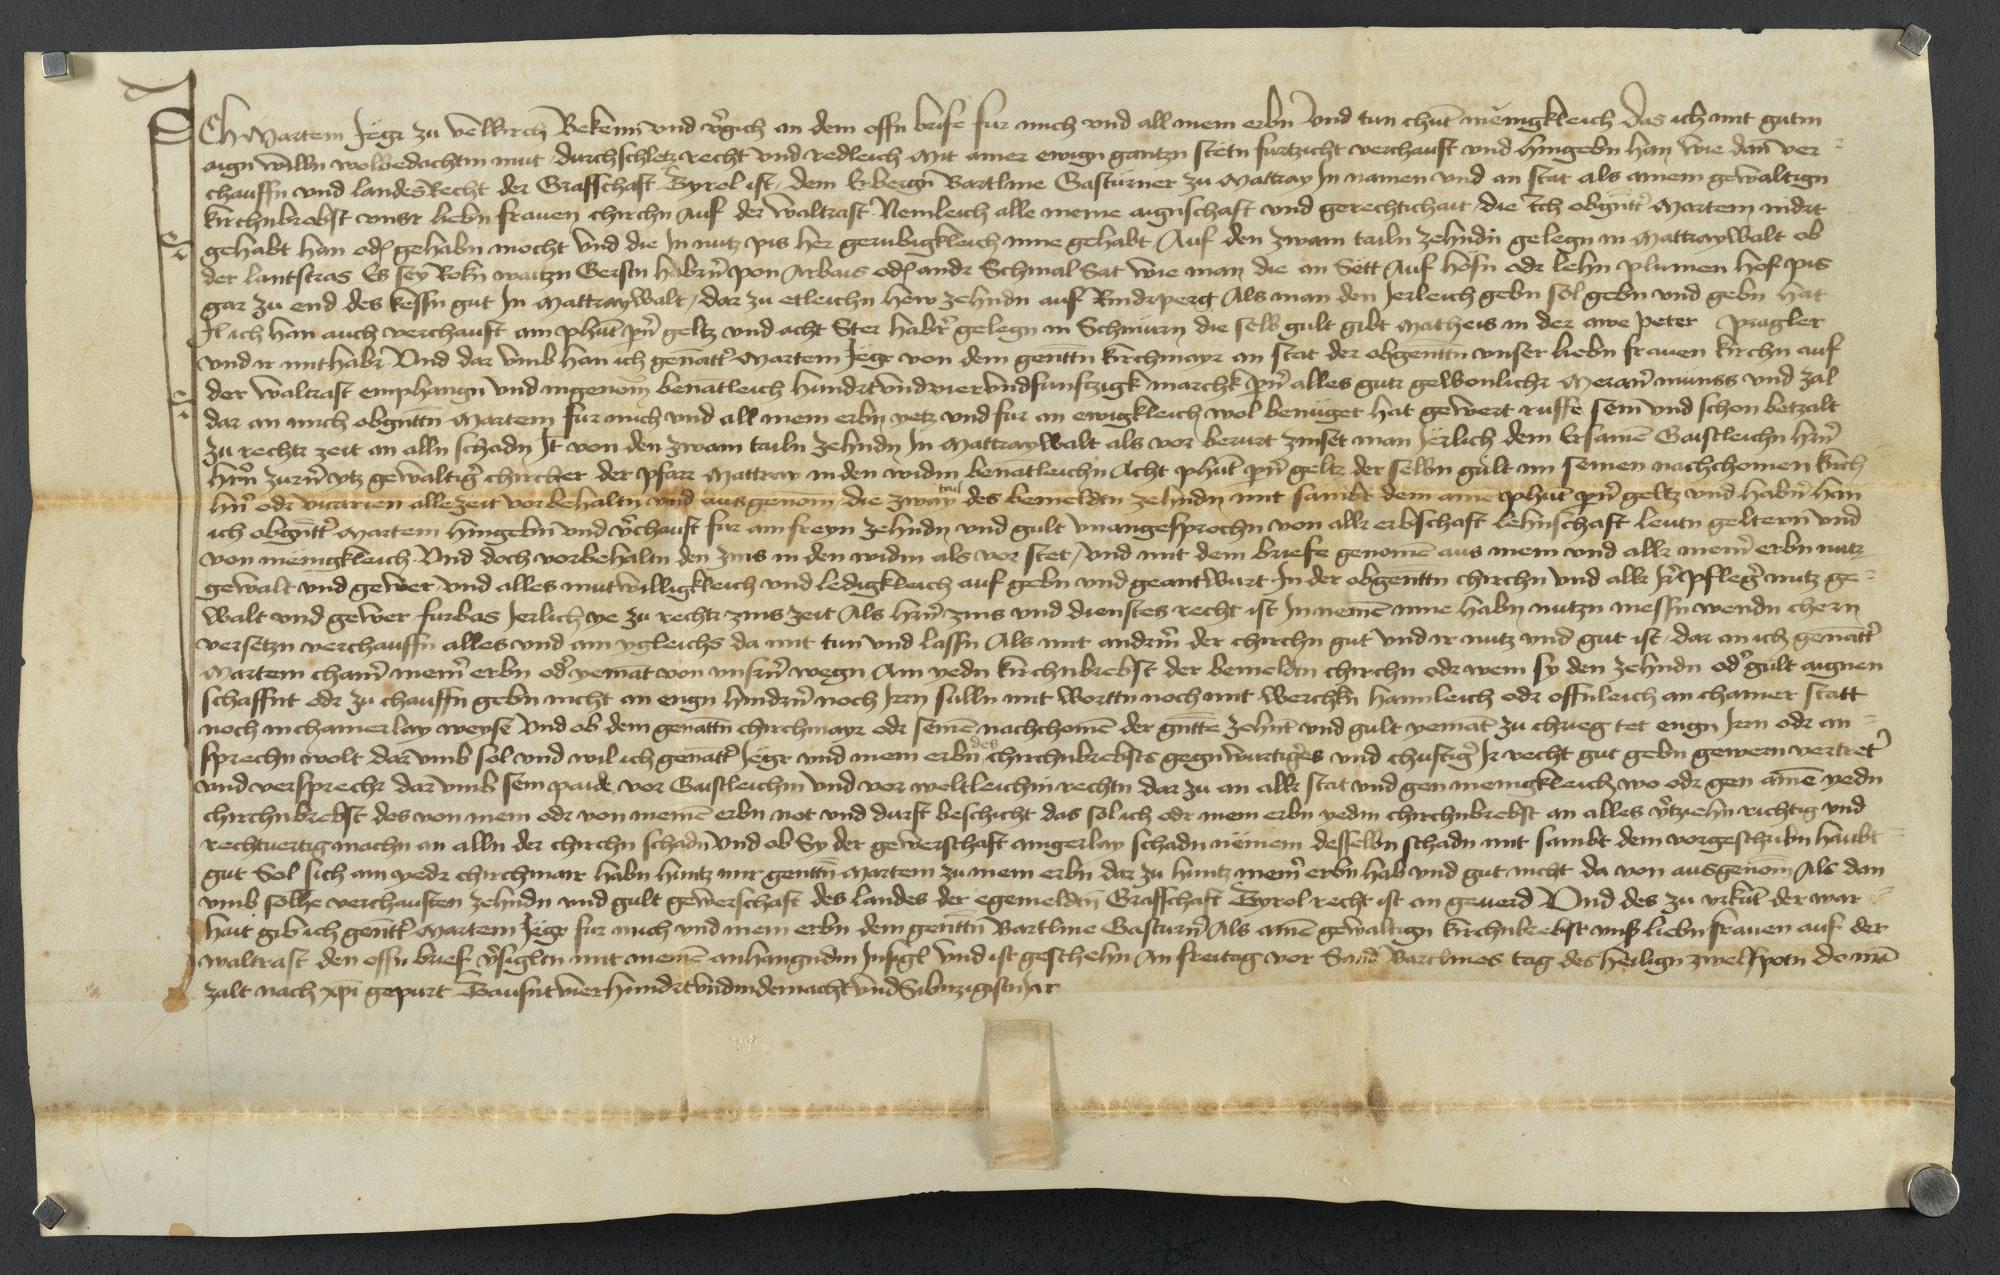 ICh Martein Jeger zu velkirch Bekenn und v̄gich an dem offn briefe fur mich und all mein erbn Und tun chūt mēnigkleich das ich mit gutm
aign willn wolbedachtm mut durchschlechtz recht und redleich Mit ainer ewign gantzn stëtn furtzicht verchauft und hingebn han wie dan̄ ver=
chauffn und landesRecht der Graffschaft Tyrol ist, dem Erbergn̄ Bartlme Gasturner zu Mattray In namen und an stat als ainem gewaltign
kirchnbrobst unsr liebn frauen chirchn Auf der waltrast Nemleich alle meine aignschaft und gerechtichait, die Ich obgn̄ttr̄ Martein indrt
gehabt han odr gehabn mocht Und die In nutz pis her gerubigkleich inne gehabt Auf den zwain tailn zehndn̄ gelegn in Mattraywalt ob
der lantstras Es sey Rokn waitzn Gerstn habrn̄ pon Arbais odr andr Schmal Sat wie man die an Sëtt Auf hofn odr lehn plumen hof pis
gar zu end des kessn gut In Mattraywalt, dar zu etleichn hëw zehndn auf Rindrperg Als man den Jerleich gebn sol gebn und gebn hat
It̄ ich han auch verchauft ain phūt pn̄ geltz und acht Ster habr̄ gelegn in Schmirn, die selb gult gibt Matheis in der awe Peter Pragler
und ir mithabr Und dar umb han ich genātt̄ Martein Jeger von dem gen̄ttn kirchmayr an stat der obgen̄ttn unser liebn frauen kirchn auf
der waltrast emphangn und ingenom̄ benātleich hundrt und vier und funftzigk marchk pn̄ alles gutr gewonlichr Meran̄ münss und zal
dar an mich obgn̄ttn Martein fur mich und all mein erbn yetz und fur an ewigkleich wol benüget hat gewert russe sein und schon betzalt
zu rechtr zeit an alln schadn It̄ von den zwain tailn zehndn In Mattraywalt als vor berurt zinset man Jerlich dem Ersamē Gaistleichn hrn̄
hrn̄ zurn̄ ytz gewaltigr̄ chircher der pfarr Mattray in den widm benātleichn Acht phūt pn̄ geltz der selbn gult im seinen nachchomen kirch
hn̄ odr vicarien alle zeit vorbehaltn und ausgenom̄ die zway tail des bemeldtn zehndn, mit sambt dem aine phūt pn̄ geltz und habrn̄ han
ich obgn̄ttr̄ Martein hingebn̄ und v̄chauft fur ain freyn zehndn und gult unangesprochn von allr erbschaft lehnschaft leutn geltern̄ und
von mēnigkleich Und doch vorbehaltn den zins in den widm als vor stet, und mit dem briefe genomē aus mein und allr mein̄ erbn nutz
gewalt und gewer und alles mutwilligkleich und ledigkleich auf gebn und geantwurt In der obgen̄ttn chirchn und allr Ir̄ pflegr̄ nutz ge=
walt und gewer furbas Jerlich ye zu rechtr zins zeit Als hrn̄ zins und dienstes recht ist In nemē inne habn nutzn niessn wendn chern
versetzn verchauffn alles und ain ygleichs da mit tun und lassn Als mit andrm̄ der chirchn gut und ir nutz und gut ist, dar an ich genātt̄
Martein chain̄ mein̄ erbn odr̄ yemāt von unsrn̄ wegn Ain yedn kirchnbrebst der bemeldtn chirchn odr wem sy den zehndn odr̄ gult aignen
schaffnt odr zu chauffn gebn nicht an engn hindrn̄ noch Irrn sulln mit wortn noch mit werchkn hamleich odr offnleich an chainer statt
noch inchainerlay weyse Und ob dem genāttn chirchmayr odr seinē nachchomē der gn̄tte zehnt und gult yemāt zu chrieg tet engn Irrn odr an=
sprechn wolt dar umb sol und wil ich genātt̄ Jeger und mein erbn des chirchnbrebsts gegnwurtigr̄s und chuftigr̄ Ir recht gut gebn gewern vertretr̄
und versprechr dar umb sein paide vor Gaistleichm und vor weltleichm rechtn dar zu an allr stat und gen menigkleich wo odr gen ainē yedn
chirchnbrebst des von mein odr von meinē erbn not und durft beschicht das sol ich odr mein erbn yedm chirchnbrebst an alles v̄tziehn richtig und
rechtvertig machn an alln der chirchn schadn̄ Und ob Sy der gewerschaft ainigerlay schadn nëmem desselbn schadn mit sambt dem vorgeschribn haubt
gut Sol sich ain yedr chirchmair habn hintz mir gen̄ttn̄ Martein zu mein erbn dar zu hintz mein̄ erbn hab und gut nicht da von ausgenom̄ Als dan
umb solhe verchauften zehndn und gult gewerschaft des landes der egemeldtn̄ Graffschaft Tyrol recht ist an geuerd Und des zu urkūt der war=
hait gib ich gen̄tt̄ Martein Jeger fur mich und mein erbn dem gen̄ttn̄ Bartlme Gasturn̄ Als ainē gewaltign kirchnbrebst unsr liebn frauen auf der
waltrast den offn brief v̄sigltn mit meinē anhangndm Insigl Und ist geschehn An freitag vor Sand Bartlmes tag des heilign zwelfpotn do mā
zalt nach xp̄i gepurt Tausnt vierhundrt und in dem acht und Sibnzigistn Jar